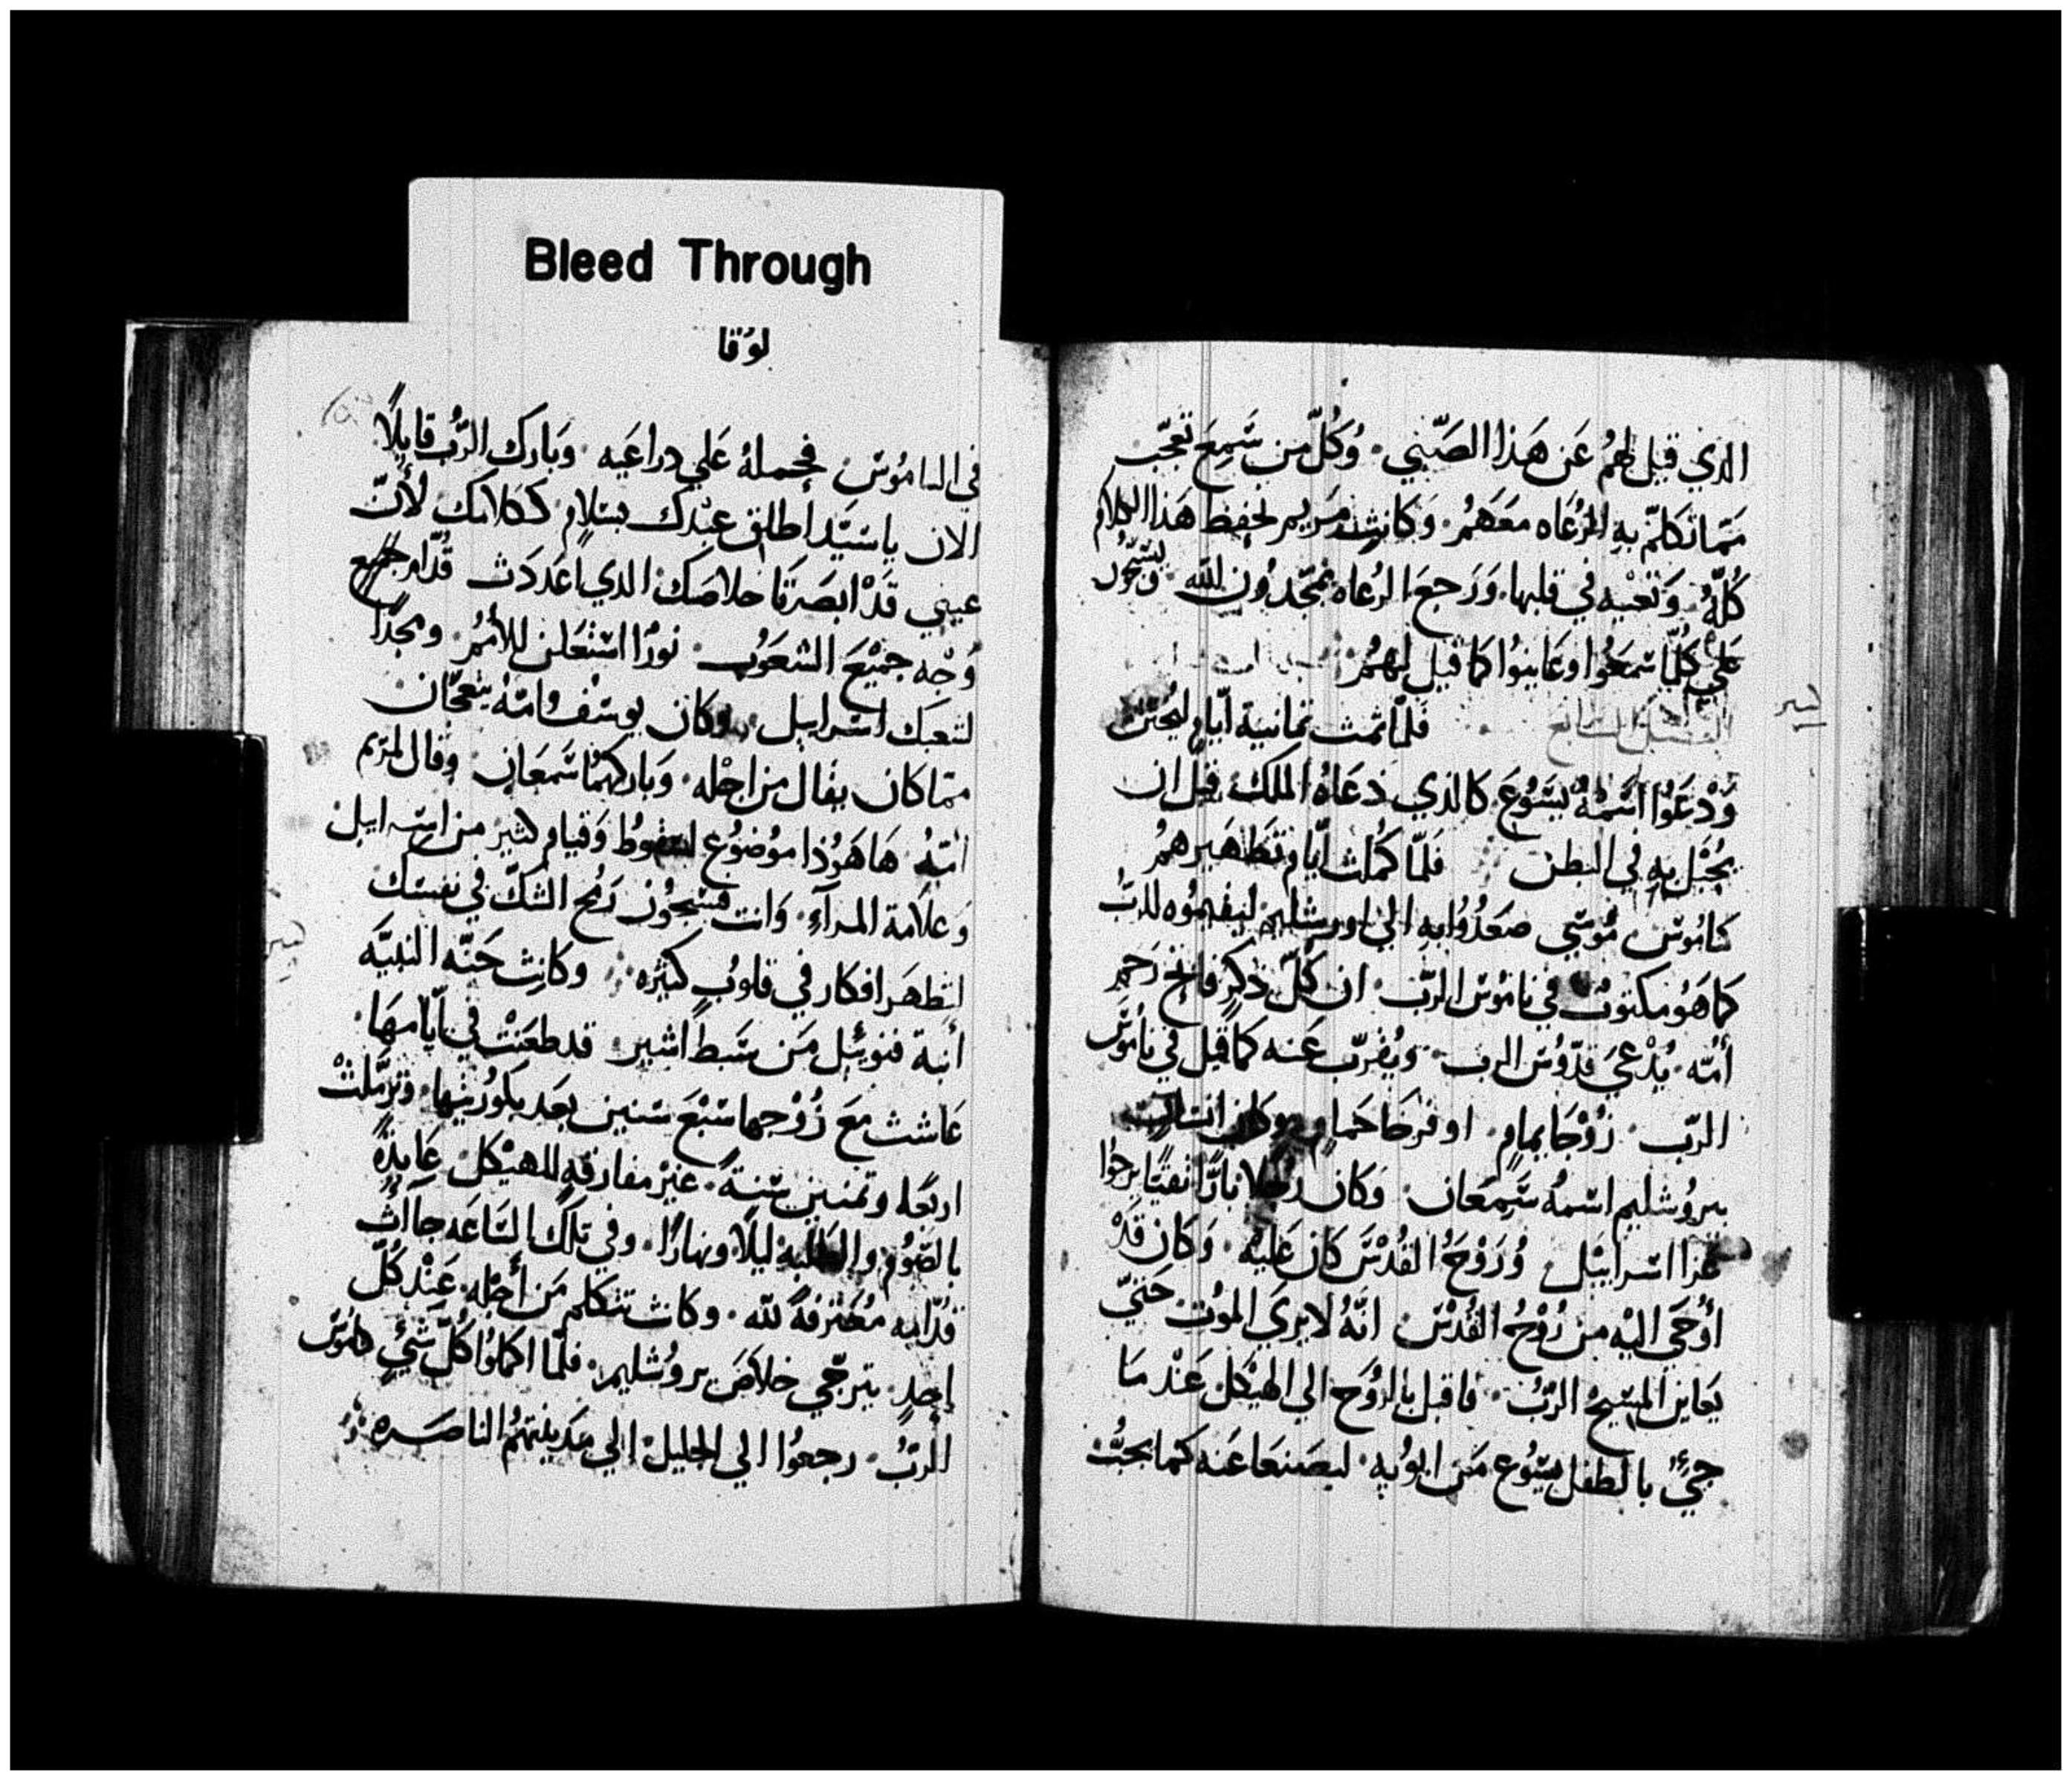 Bleed Through
لوقا
الذي قيل لهُمُ عَن هَذا الصَّبي. وَكُلّ من سَمِعَ تعَجّب
ممّا تكلمّ بهِ الرُعَاه معَهُمُ. وَكانت مَريم تحفظ هَذا الكلام
كُلّهُ. وَتعَيه في قلبها. وَرَجعَ الرُعاه يمجّدُون للّه. ويسَبّحُون
عَلي كُلّما سَمعُوا وعَاينوُا كما قيل لهمُ
فلمّا تمت ثمانية أيام ليُختن
وَدعَوُا اسَمهُ يسَوُعَ. كالذي دعَاهُ الملك قبل ان
يُحبَل بهِ في البطن فلمّا كمُلت أيام تطَهيرهمُ
كنامُوس مُوسَي صَعَدُوُا بهِ الي اورشليم ليقيموُه للربُ
كما هَوُ مكتوُبٌ في نامُوس الربّ. ان كُلّ ذكرٍ فاتح رَحم
أمّه. يُدْعَيَ قدّوُس الرب. ويُقرّب عَنه كما قيل في نامُوس
الربّ. زوْجَا يمامٍ. او فرخَا حَمامٍ. وكان انسان
بيروُشليم اسمهُ سَمعَان. وَكان رجُلا بارًّا تقيًا يرجُوا
عَزا اسَراييَل وُرَوْحُ القُدْسَ كان عَليْه. وَكان قَدْ
أُوحَيَ اليْه من رُوْحُ القُدْس انَّهُ لا يرَي الموُت حَتيّ
يَعاين المسَيحُ الربُ. فاقبل بالرُوَح الي الهيْكل عَنْد مَا
جيءَ بالطفل يسَوُع مَن ابوُيهِ. ليصَنعَا عَنه كما يجبُ
في النامُوس فحملهُ عَلي دراعَيه. وَبارك الربُ قايلًا
الان يا سَيّد أطلق عبْدك بسَلامٍ. ككلامك لأنّ
عيني قَدْ ابصَرتا خلاصَك الدي اعَددَت قُدّام جميع
وُجْه جميَع الشعَوُب. نورًا استعَلن للأممُ. ومجدًا
لشعبَك اسَراييل. وكان يوسَف وامّهُ يتعَجّبان
ممّا كان يقال من اجْله. وَباركهمُا سَمعَان. وَقال لمَريم
امّهُ هَا هَوُذا موُضوُع لسقوُط وَقيام كثير من اسَراييل
وَعلامة المرآءِ. وَانت فسَيجُوز رَمُح الشكّ في نفسَك
لتظهَر افكار في قلوُب كثيَره. وكانت حَنّه النبيَّه
أبنة فنوئيل مَن سَبط اشير. قد طعَنتْ في أيامهَا.
عَاشت معَ زُوْجها سَبْعَ سَنين بعَد بكورُيتها. وترَمّلتْ
اربَعَه وتمنين سَنةً. غيْر مفارقهِ للهيْكل عَابدةً
بالصَوُم والطلبه ليلًا ونهارًا. وفي تلك السَاعَه جاأت
قدّامه معُترفهً للّه. وكانت تتكلم مَن أجْله. عَنْد كلّ
احدٍ يترجّي خلاصَ يروُشليم. فلمّا اكملوُا كُلّ شيٍ كنامُوس
الربُ. رجعوُا الي الجليل. الي مَدينتهمُ الناصَره